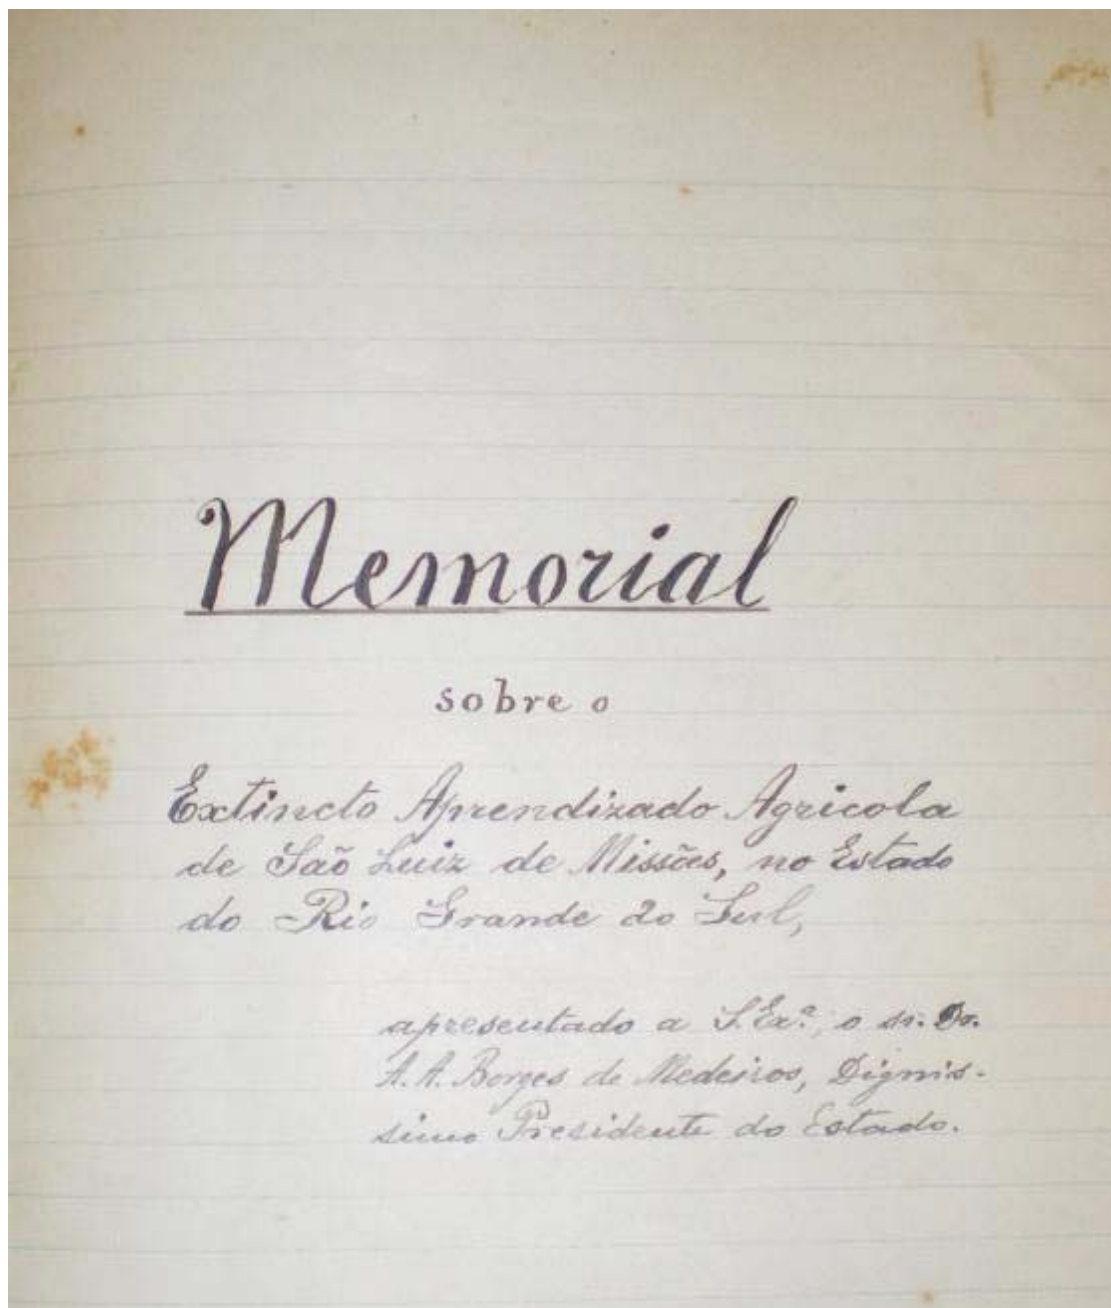 Memorial
sobre o
Extincto Aprendizado Agricola
de Saõ Luiz de Missões, no Estado
do Rio Grande do Sul,
apresentado a S. Exª, o sr. Dr.
A. A. Borges de Medeiros, Dignis-
simo Presidente do Estado.